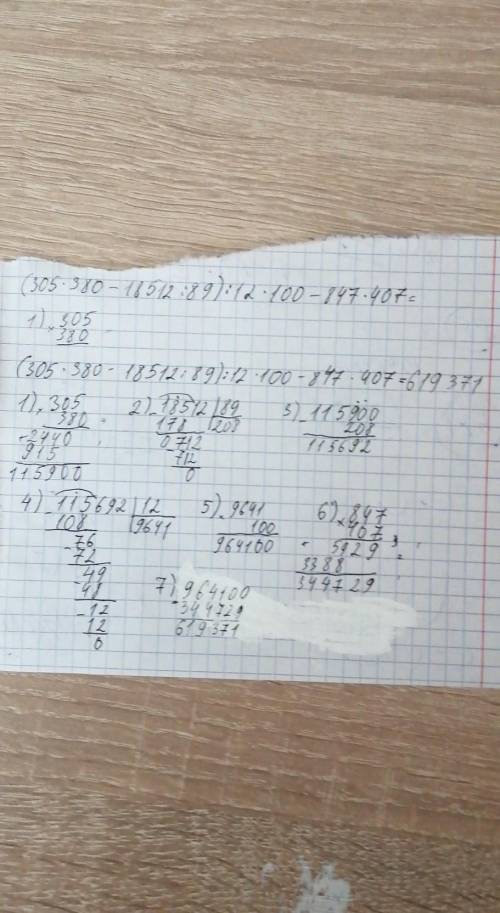 (305·380-18512:89):12·100-847·407=
1) ×305
380
(305·380-18512:89):12·100-847·407=619371
1) ×305
380
2440
915
115900
2) 18512 | 89
178 | 208
0712
-712
0
3) -115900
208
115692
4) -115692 | 12
108 | 9641
-76
72
-49
48
-12
12
0
5) ×9641
100
964100
6) ×847
407
5929
3388
344729
7) -964100
344729
619371